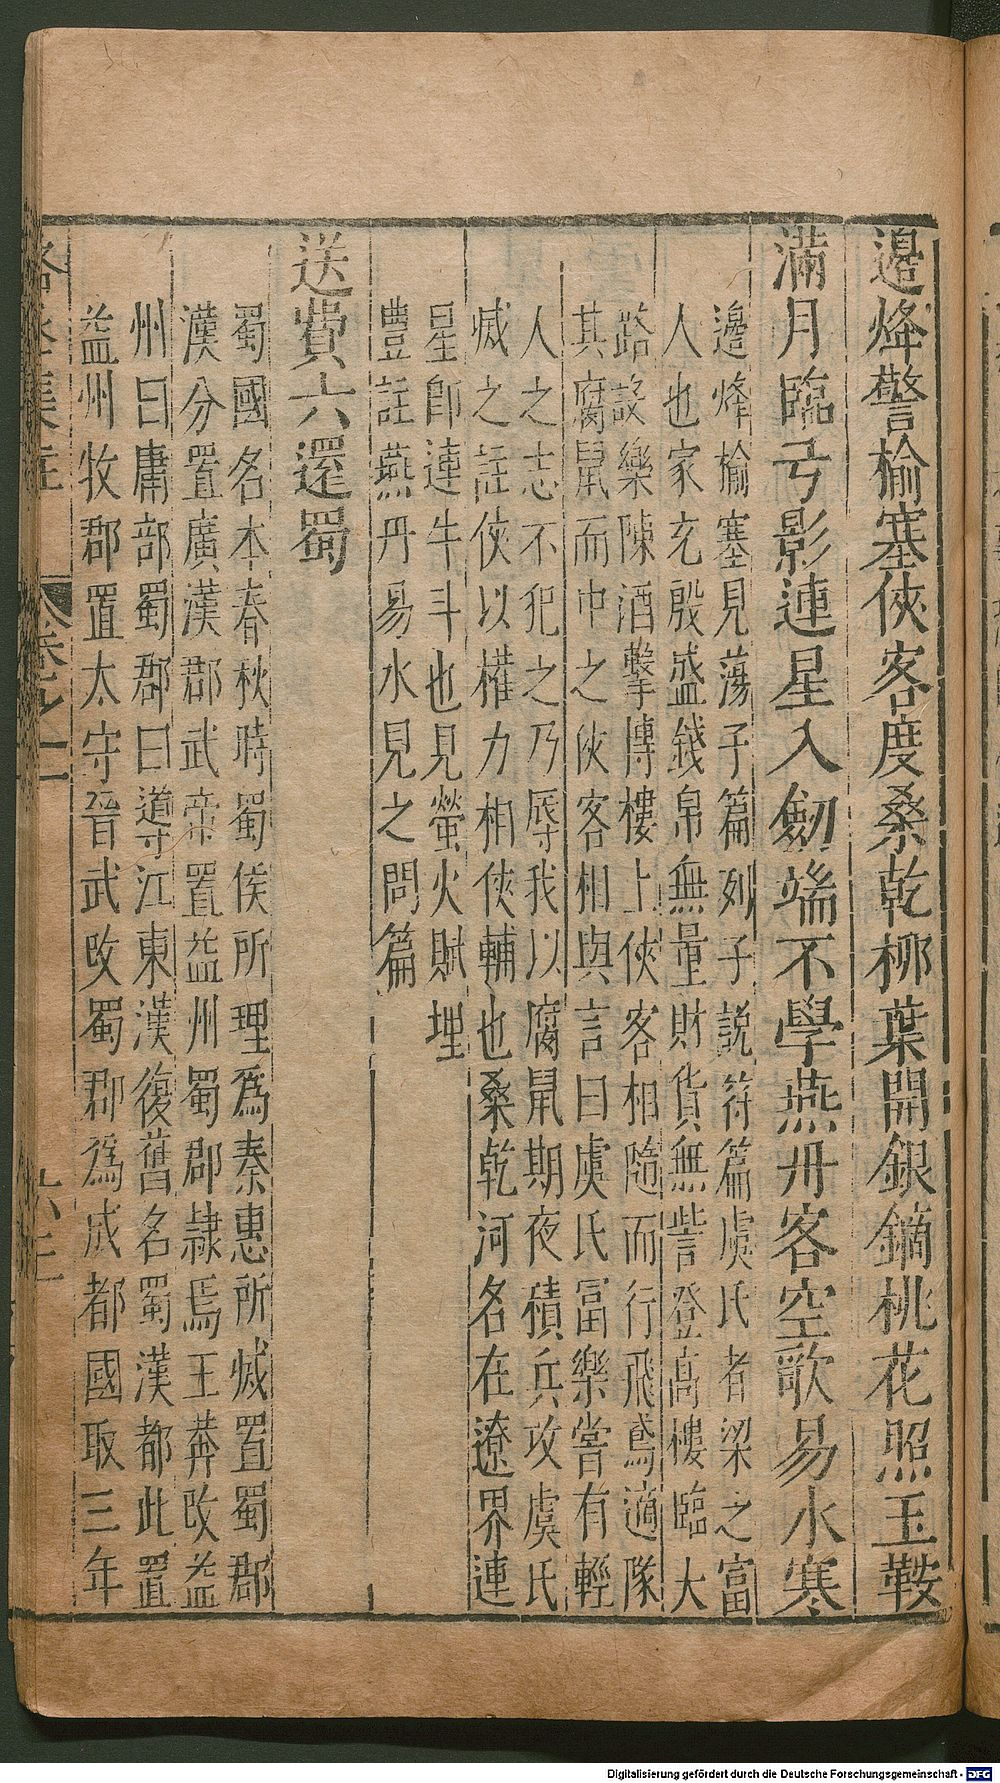 邊烽警榆塞俠客度桑乾柳葉開銀鏑桃花照玉鞍
滿月臨弓影連星入劒端不學燕丹客空歌易水寒
邊烽榆塞見蕩子篇列子說符篇虞氏者梁之富
人也家充殷盛錢帛無量財貨無訾登高樓臨大
路設樂陳酒擊博樓上俠客相隨而行飛鳶適隊
其腐鼠而中之俠客相與言曰虞氏富樂嘗有輕
人之志不犯之乃辱我以腐鼠期夜積兵攻虞氏
烕之註俠以權力相俠輔也桑乾河名在遼界連
星卽連牛斗也見螢火賦埋
豊註燕丹易水見之問篇
送費六還蜀
蜀國名本春秋時蜀侯所理爲秦惠所烕置蜀郡
漢分置廣漢郡武帝置益州蜀郡隷焉王莽改益
州曰庸部蜀郡曰導江東漢復舊名蜀漢都此置
益州牧郡置太守晉武改蜀郡爲成都國取三年
卷之二
Digitalisierung gefördert durch die Deutsche Forschungsgemeinschaft - DFG